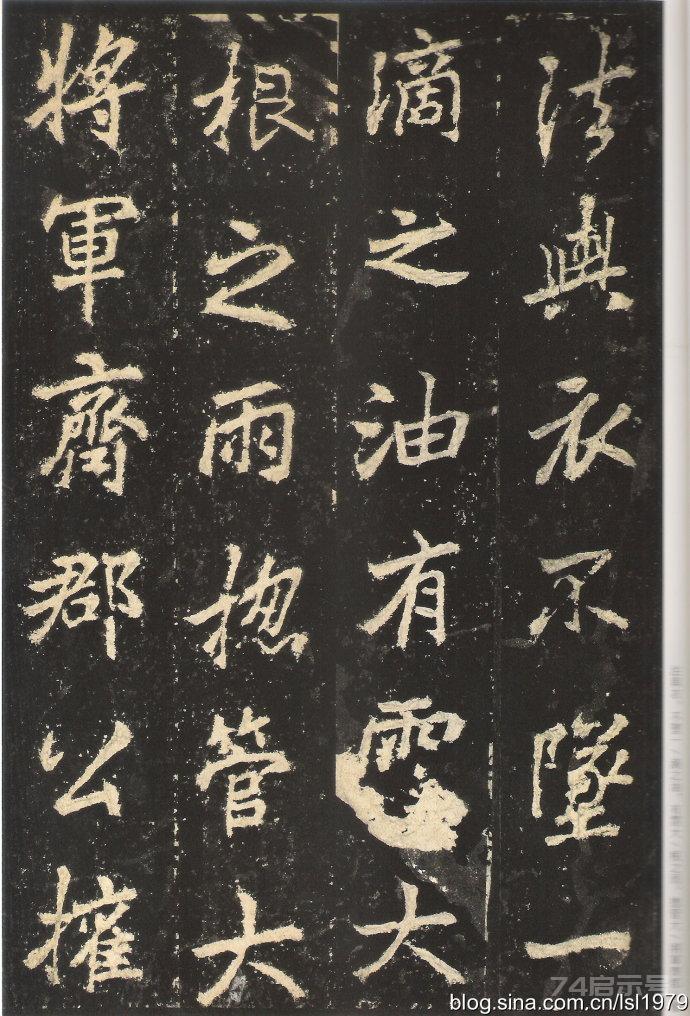 法與衣不墜一
滴之油有大
根之雨揔管大
將軍齊郡公權
74启示号
blog.sina.com.cn/lsl1979